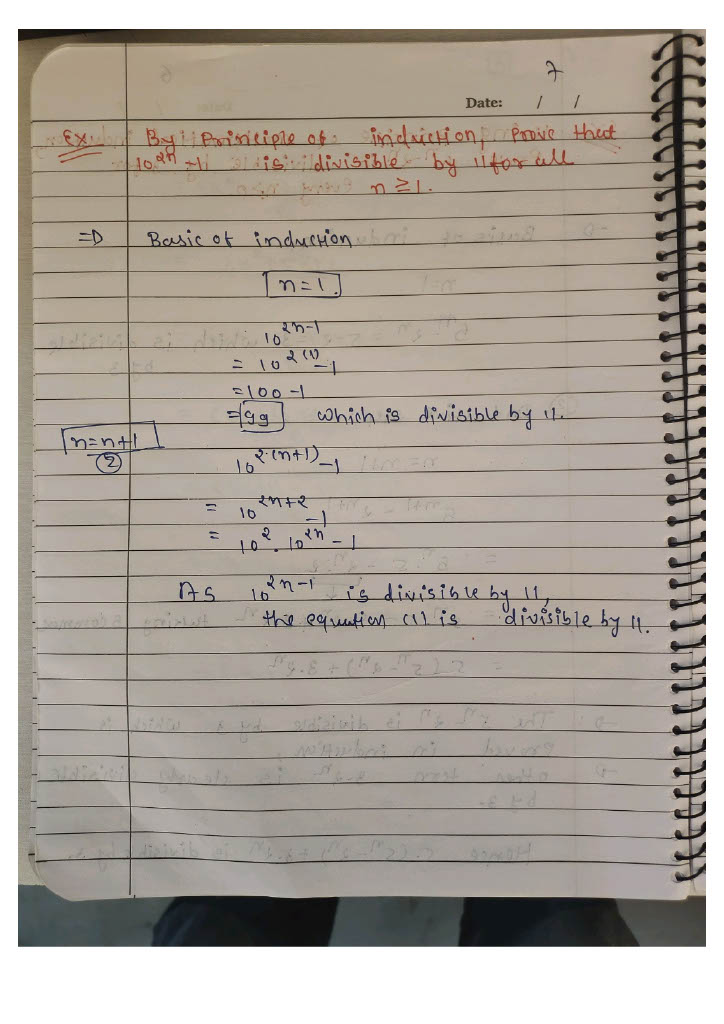 7
Date: / /
Ex: By Priniciple of induction, Prove that
10^2n -1 is divisible by 11 for all
n ≥ 1.
⇒ Basic of induction
n = 1.
10^2n-1
= 10^2(1) -1
= 100 -1
= 99 which is divisible by 11.
n = n+1
②
10^2.(n+1) -1
= 10^2n+2 -1
= 10^2 . 10^2n - 1
As 10^2n-1 is divisible by 11,
the equation (1) is divisible by 11.